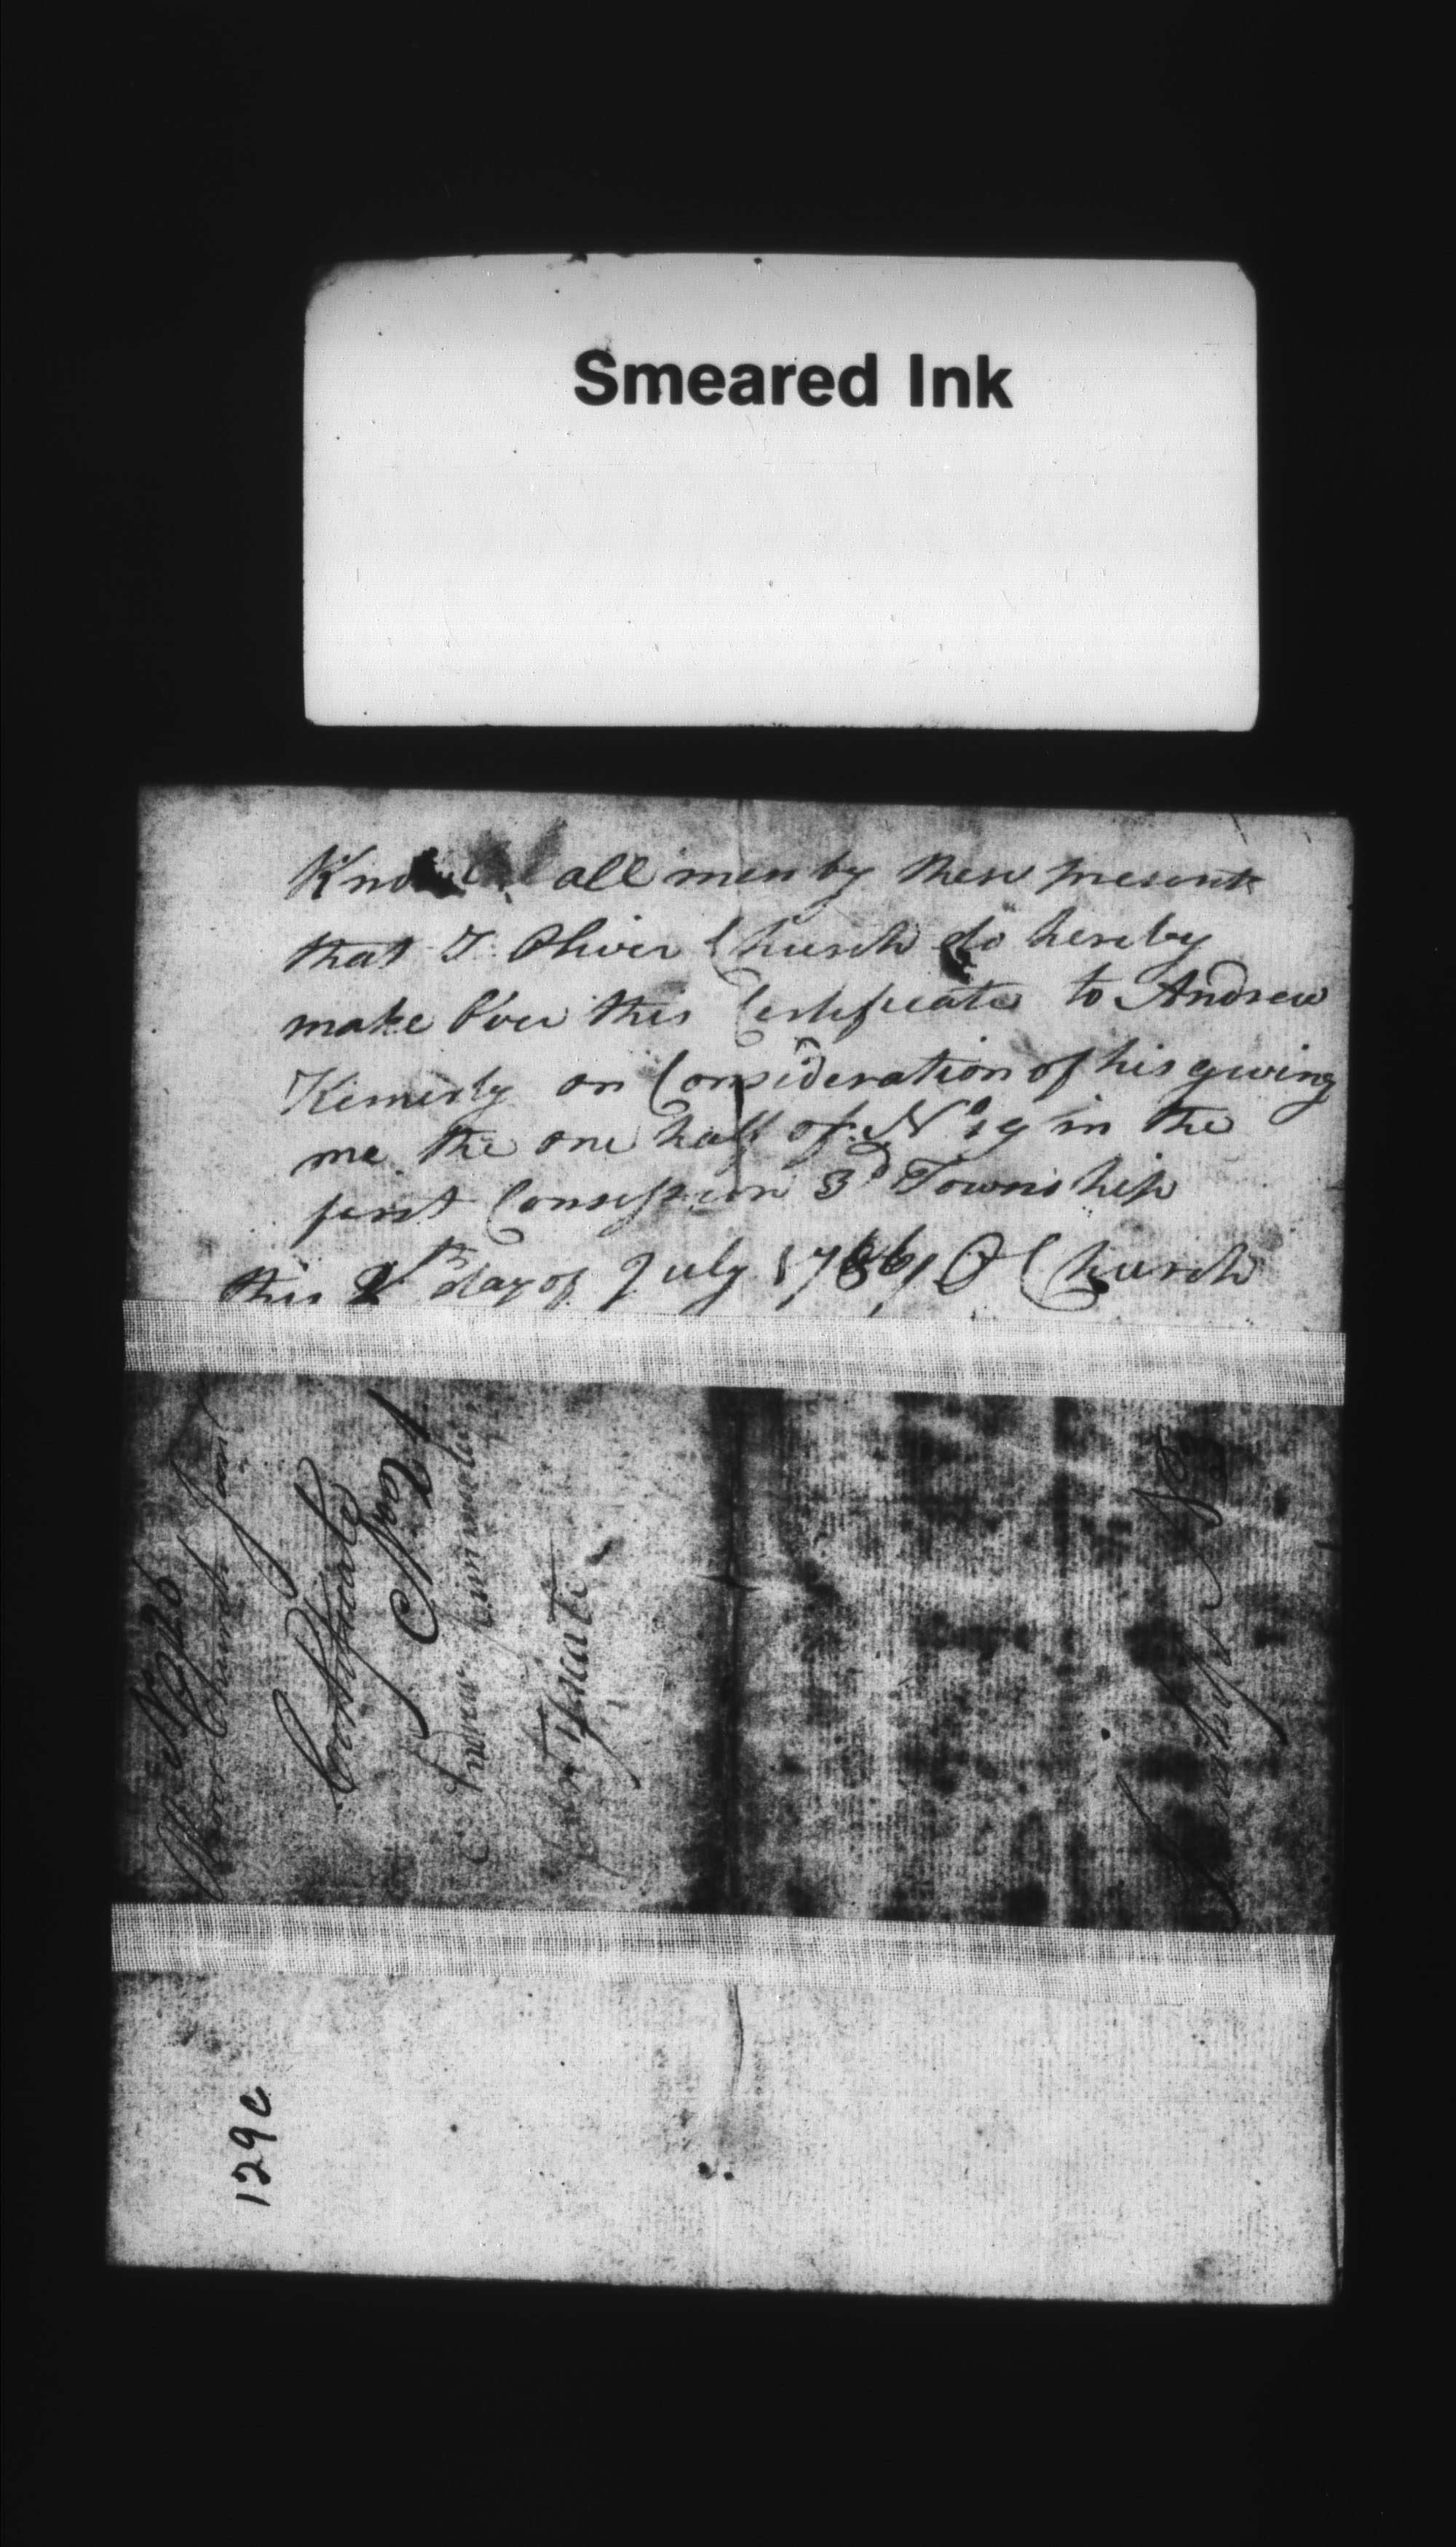 Smeared Ink
Know all men by these present
that I Oliver Church do hereby
make Over this Certificate to Andrew
Kennedy on Consideration of his giving
me the one half of No 19 in the
first Consession 3d Township
this day of July 1786 O Church
No 26
Oliver Church
Certificate
Certificate
129c